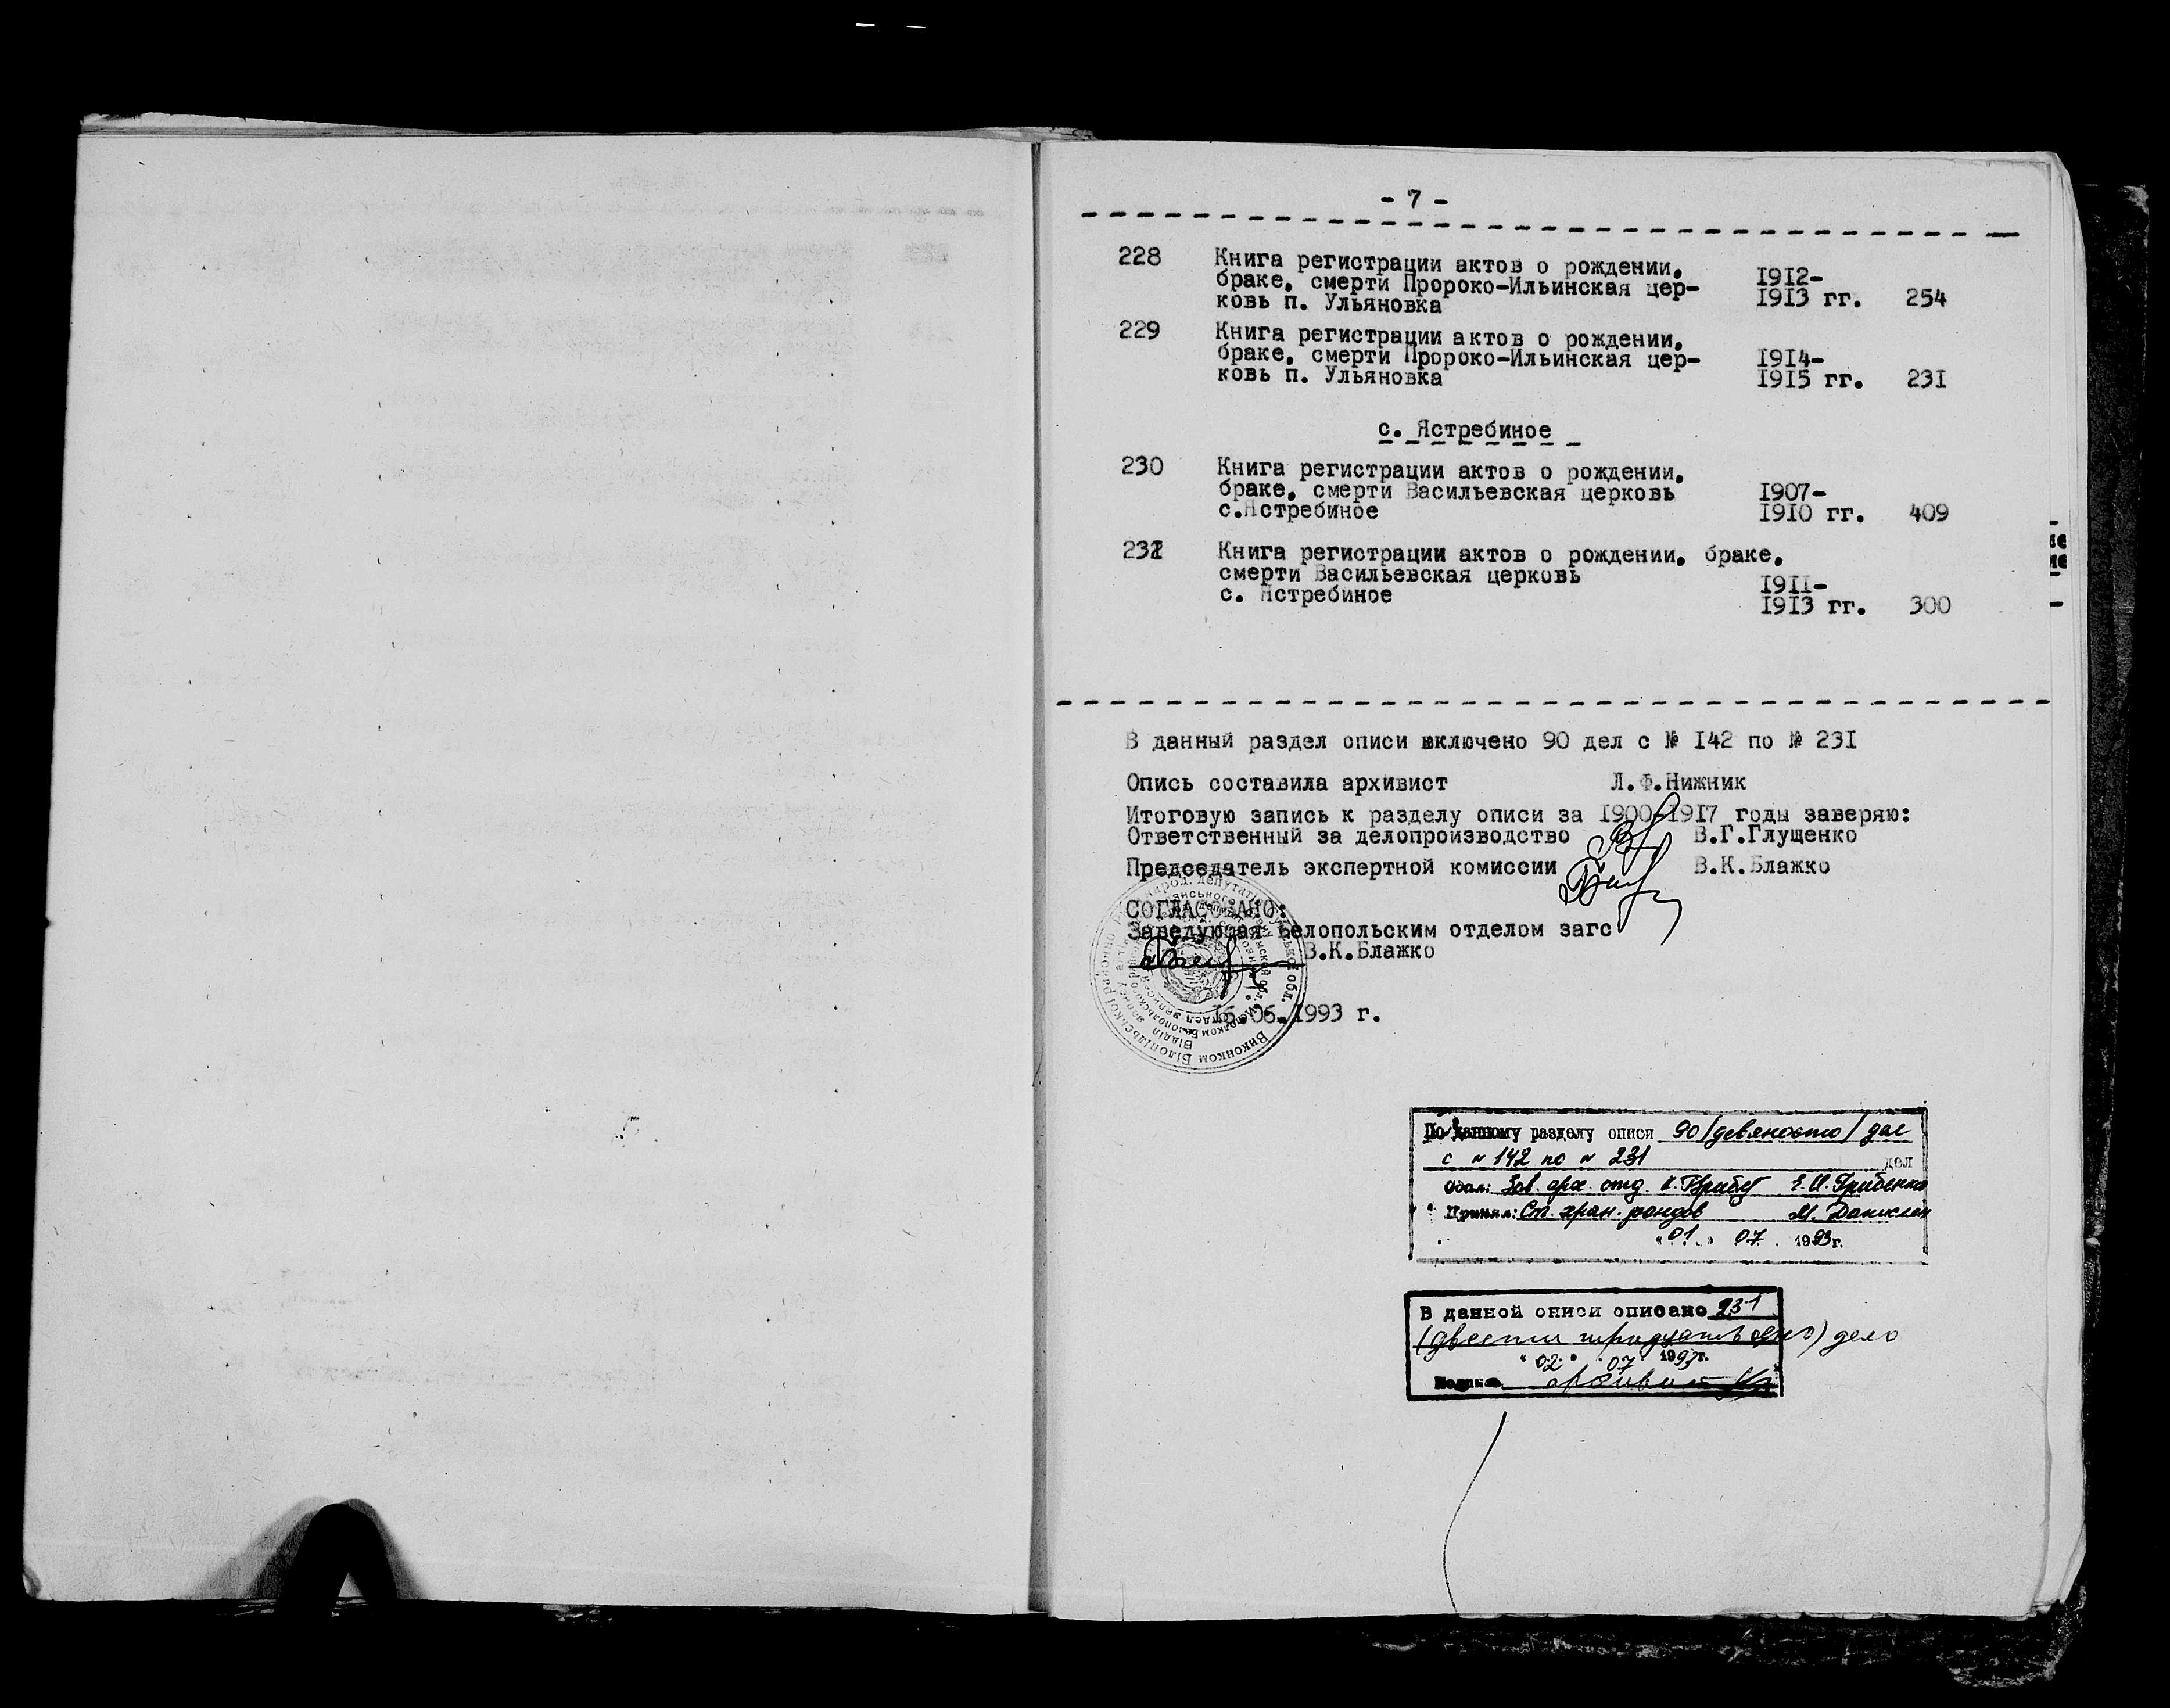 - 7 -
228 Книга регистрации актов о рождении,
браке, смерти Пророко-Ильинская цер- 1912-
ковь п. Ульяновка 1913 гг. 254
229 Книга регистрации актов о рождении,
браке, смерти Пророко-Ильинская цер- 1914-
ковь п. Ульяновка 1915 гг. 231
с. Ястребиное
230 Книга регистрации актов о рождении,
браке, смерти Васильевская церковь 1907-
с.Ястребиное 1910 гг. 409
231 Книга регистрации актов о рождении, браке,
смерти Васильевская церковь 1911-
с. Ястребиное 1913 гг. 300
В данный раздел описи включено 90 дел с № 142 по № 231
Опись составила архивист Л.Ф.Нижник
Итоговую запись к разделу описи за 1900-1917 годы заверяю:
Ответственный за делопроизводство В.Г.Глущенко
Председатель экспертной комиссии В.К.Блажко
СОГЛАСОВАНО:
Заведующая Белопольским отделом загс
В.К.Блажко
.06.1993 г.
По данному разделу описи 90 /девяносто/ дел
с № 142 по № 231 дел
Сдал: Зав. арх. отд. Е.И. Грибенко
Принял: Ст. хран. фондов М.
"01" 07. 1993г.
В данной описи описано 231
(двести тридцать одно) дело
"02" 07. 1993г.
Подпись архивист